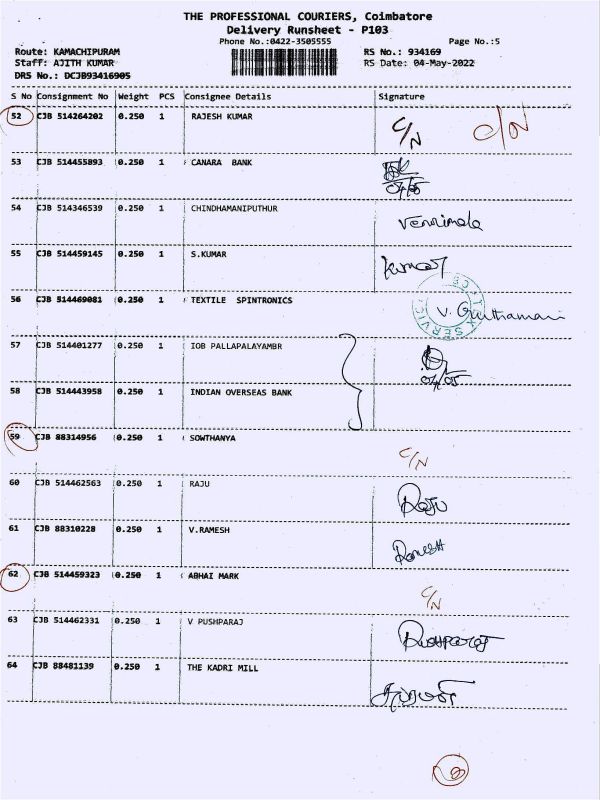 THE PROFESSIONAL COURIERS, Coimbatore
Delivery Runsheet - P103
Phone No.:0422-3505555 Page No.:5
Route: KAMACHIPURAM RS No.: 934169
Staff: AJITH KUMAR RS Date: 04-May-2022
DRS No.: DCJB93416905
S No Consignment No Weight PCS Consignee Details Signature
52 CJB 514264202 0.250 1 RAJESH KUMAR C/N C/N
53 CJB 514455893 0.250 1 CANARA BANK 04/05
54 CJB 514346539 0.250 1 CHINDHAMANIPUTHUR
55 CJB 514459145 0.250 1 S.KUMAR Kumar
56 CJB 514469081 0.250 1 TEXTILE SPINTRONICS
57 CJB 514401277 0.250 1 IOB PALLAPALAYAMBR 04/05
58 CJB 514443958 0.250 1 INDIAN OVERSEAS BANK
59 CJB 88314956 0.250 1 SOWTHANYA C/N
60 CJB 514462563 0.250 1 RAJU Raju
61 CJB 88310228 0.250 1 V.RAMESH Ramesh
62 CJB 514459323 0.250 1 ABHAI MARK C/N
63 CJB 514462331 0.250 1 V PUSHPARAJ Pushparaj
64 CJB 88481139 0.250 1 THE KADRI MILL